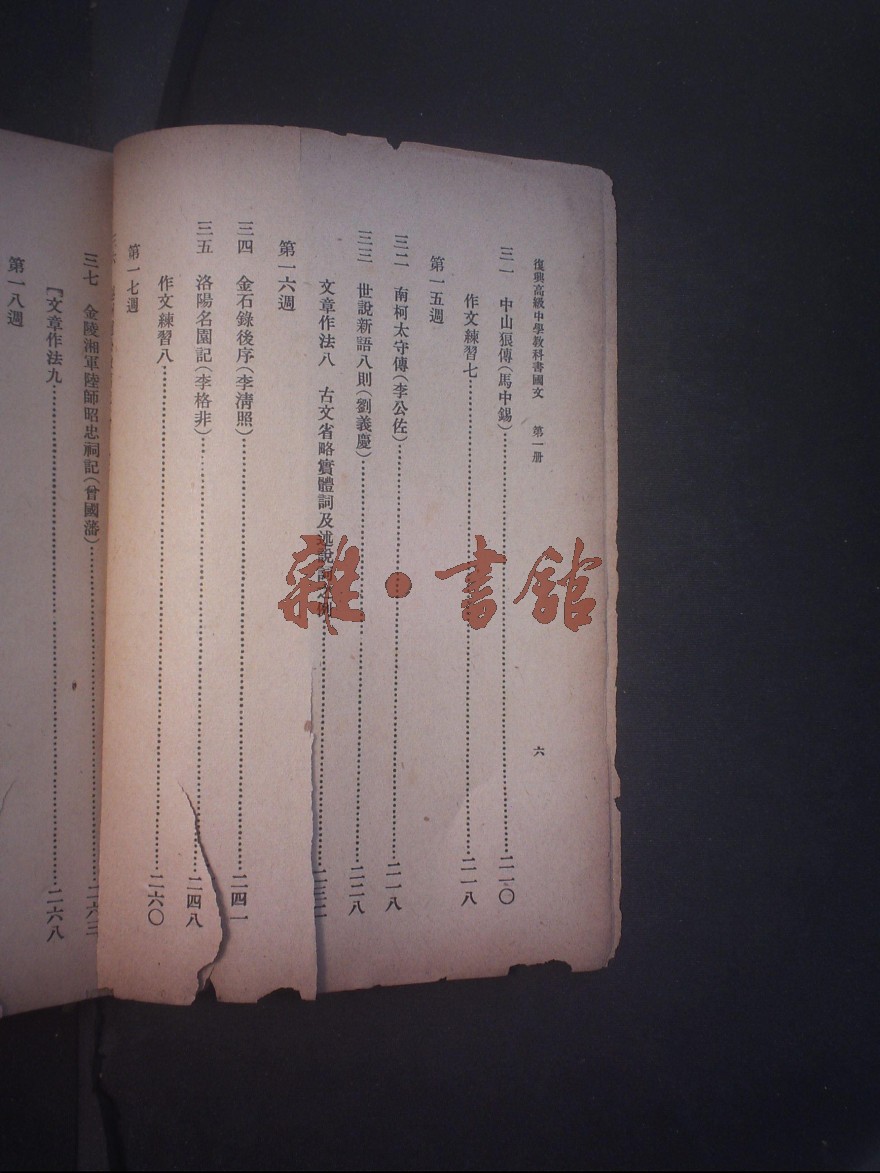 復興高級中學教科書國文 第一册
六
三一 中山狼傳(馬中錫)……二一〇
作文練習七……二一八
第一五週
三二 南柯太守傳(李公佐)……二一八
三三 世說新語八則(劉義慶)……二二八
文章作法八 古文省略實體詞及述說詞之例……二三二
第一六週
三四 金石錄後序(李淸照)……二四一
三五 洛陽名園記(李格非)……二四八
作文練習八……二六〇
第一七週
三七 金陵湘軍陸師昭忠祠記(曾國藩)……二六三
『文章作法九……二六八
第一八週
雜·書館